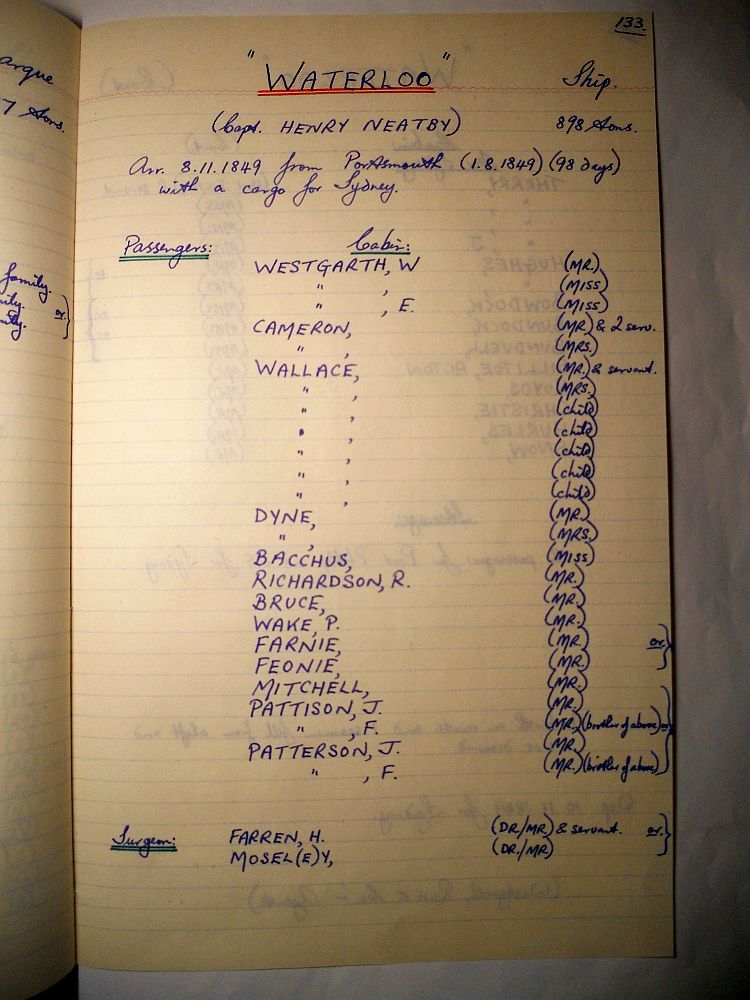 133.
"WATERLOO" Ship.
(Capt. HENRY NEATBY) 898 tons.
Arr. 8.11.1849 from Portsmouth (1.8.1849) (98 days)
with a cargo for Sydney.
Passengers: Cabin:
WESTGARTH, W (MR.)
" , (MISS)
" , E. (MISS)
CAMERON, (MR.) & 2 serv.
" , (MRS.)
WALLACE, (MR.) & servant.
" , (MRS.)
" , (child)
" , (child)
" , (child)
" , (child)
" , (child)
DYNE, (MR.)
" , (MRS.)
BACCHUS, (MISS)
RICHARDSON, R. (MR.)
BRUCE, (MR.)
WAKE, P. (MR.)
FARNIE, (MR.) or.}
FEONIE, (MR.)
MITCHELL, (MR.)
PATTISON, J. (MR.)
" , F. (MR.) (brother of above) or}
PATTERSON, J. (MR.)
" , F. (MR.) (brother of above)
Surgeon: FARREN, H. (DR/MR) & servant. or.}
MOSEL(E)Y, (DR./MR)
arque
7 tons.
family.
ily. or.}
ily.